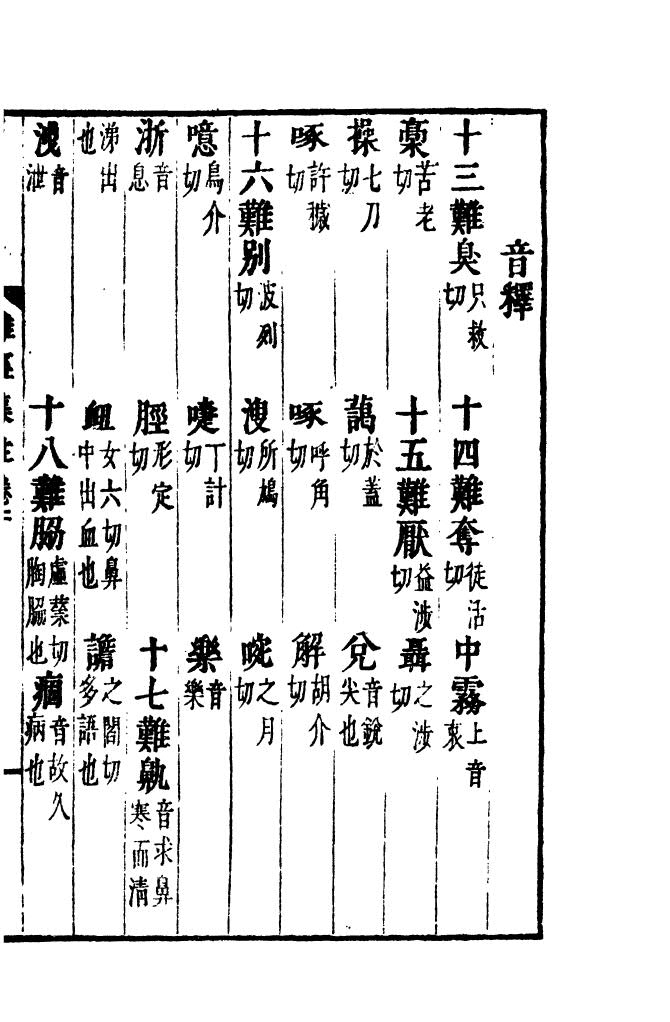 音釋
十三難臭只救切 十四難奪徒活切 中霧上音衷
稾苦老切 十五難厭益涉切 聶之涉切
操七刀切 藹於蓋切 兌音銳尖也
啄許撽切 啄呼角切 解胡介切
十六難別波列切 溲所鳩切 㖠之月切
噫烏介切 嚏丁計切 樂音樂
浙音息 脛形定切 十七難鼽音求鼻寒而清
涕出也 衄女六切鼻中出血也 譫之閻切多語也
洩音泄 十八難脇虛業切胸脇也 痼音故久病也
難經集註卷二